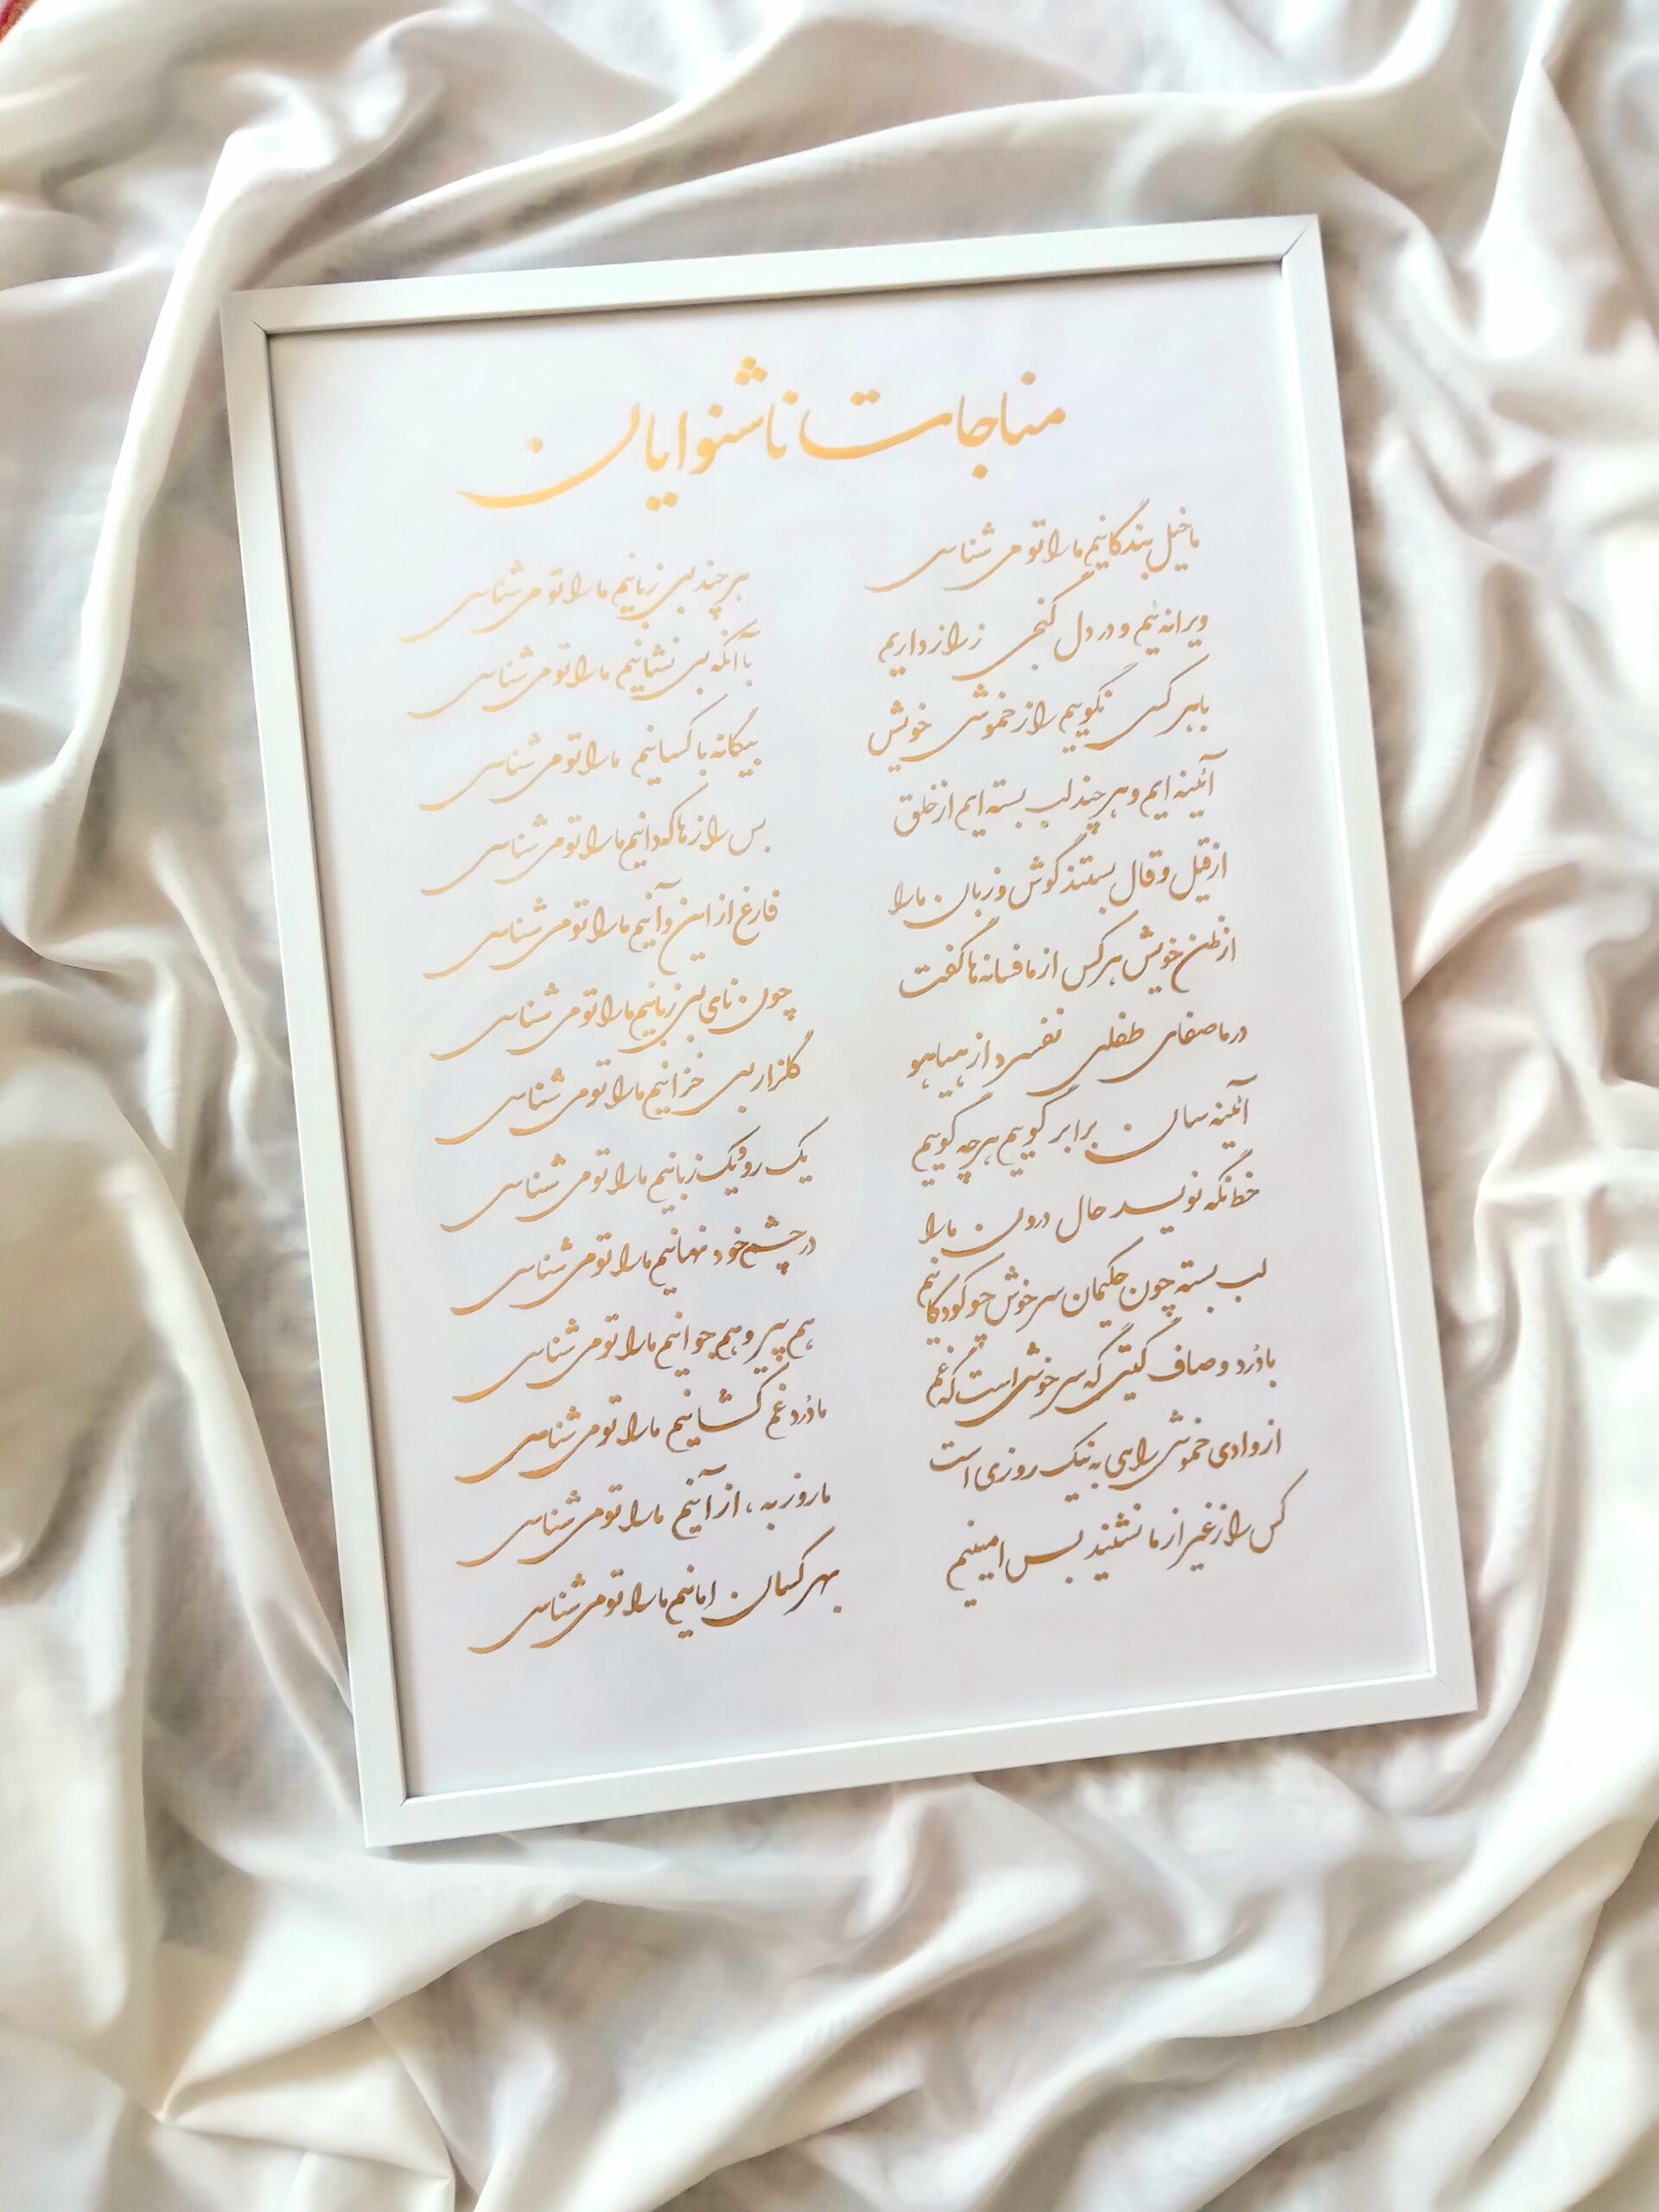 مناجات ناشنوایان
ما خیل بندگانیم ما را تو می شناسی
هر چند بی زبانیم ما را تو می شناسی
ویرانه ئیم و در دل گنجی ز راز داریم
با آنکه بی نشانیم ما را تو می شناسی
با هر کسی نگوییم راز خموشی خویش
بیگانه با کسانیم ما را تو می شناسی
آئینه ایم و هر چند لب بسته ایم از خلق
بس راز ها که دانیم ما را تو می شناسی
از قیل و قال بستند گوش و زبان ما را
فارغ از این و آنیم ما را تو می شناسی
از ظن خویش هر کس از ما فسانه ها گفت
چون نای بی زبانیم ما را تو می شناسی
در ما صفای طفلی نفسرد از هیاهو
گلزار بی خزانیم ما را تو می شناسی
آئینه سان برابر گوییم هر چه گوییم
یک رو و یک زبانیم ما را تو می شناسی
خط نگه نویسد حال درون ما را
در چشم خود نهانیم ما را تو می شناسی
لب بسته چون حکیمان سر خوش چو کودکانیم
هم پیر و هم جوانیم ما را تو می شناسی
با دُرد و صاف گیتی گه سر خوشی است گه غم
ما دُرد غم کشانیم ما را تو می شناسی
از وادی خموشی راهی به نیک روزی است
ما روز به ، از آنیم ما را تو می شناسی
کس راز غیر از ما نشنید بس امینیم
بهر کسان امانیم ما را تو می شناسی